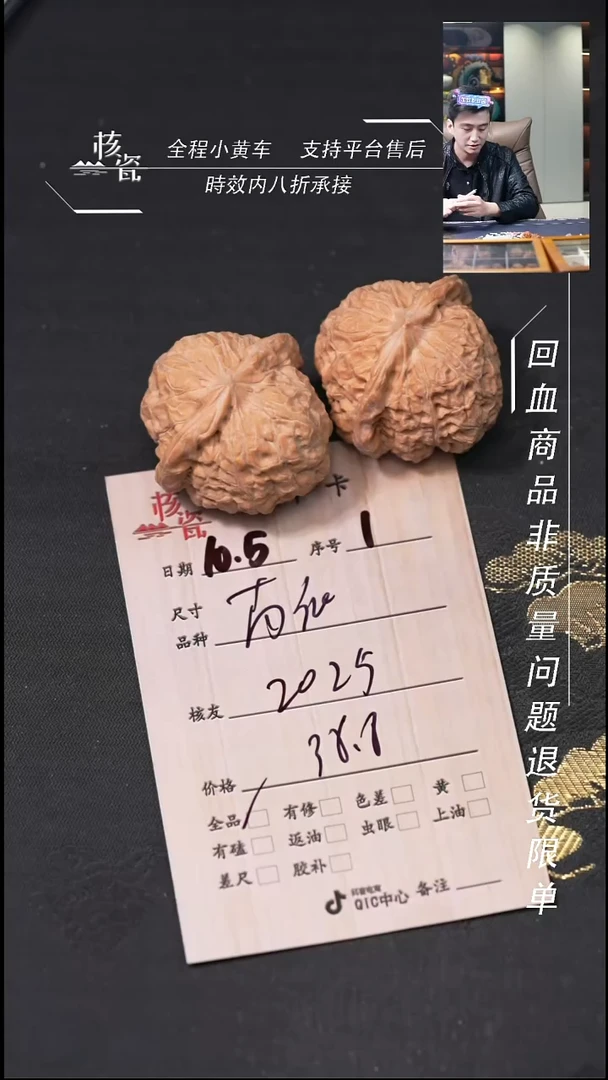 核瓷
全程小黄车 支持平台售后
時效内八折承接
回血商品非质量问题退货限单
核瓷 卡
日期 10.5 序号 1
尺寸
品种
核友 2025
价格 38.8
全品 有修 色差 黄
有磕 返油 虫眼 上油
差尺 胶补
抖音电商
QIC中心 备注